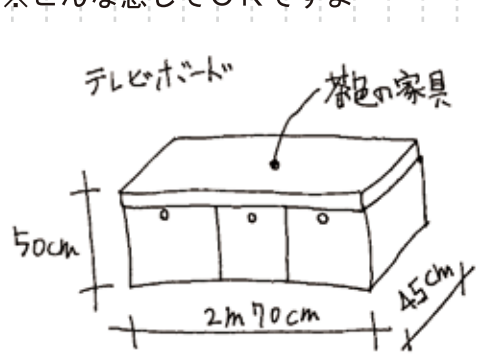 ※こんな感じでOKですよ
テレビボード
茶色の家具
50cm
2m70cm
45cm